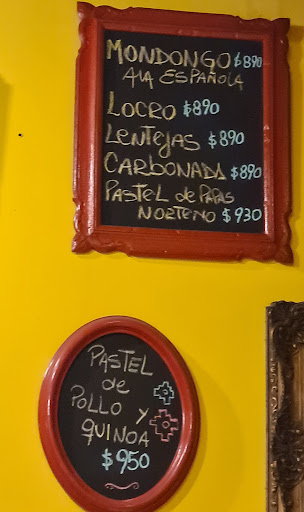 MONDONGO $890
A LA ESPAÑOLA
LOCRO $890
LENTEJAS $890
CARBONADA $890
PASTEL de PAPAS
NORTEÑO $930
PASTEL
de
POLLO y
QUINOA
$950